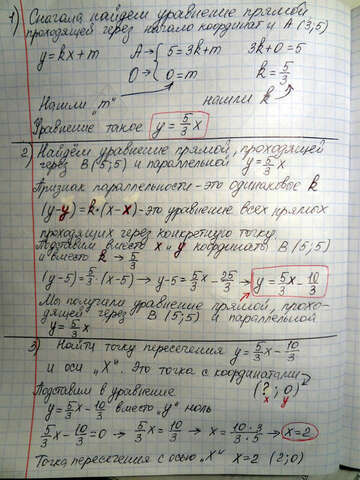 1) Сначала найдем уравнение прямой
проходящей через начало координат и A (3,5)
y=kx+m A→ 5=3k+m 3k+0=5
O→ 0=m k=5/3
Нашли "m" нашли k
Уравнение такое y=5/3x
2) Найдём уравнение прямой, проходящей
через B (5;5) и параллельной y=5/3x
Признак параллельности - это одинаковые k
(y-y)=k·(x-x) - это уравнение всех прямых
проходящих через конкретную точку.
Подставим вместо x и y координаты B (5;5)
и вместо k → 5/3
(y-5)=5/3·(x-5) → y-5=5/3x-25/3 → y=5/3x-10/3
Мы получили уравнение прямой, прохо-
дящей через B (5;5) и параллельной
y=5/3x
3) Найти точку пересечения y=5/3x-10/3
и оси "X". Это точка с координатами
Подставим в уравнение (?;0)
x y
y=5/3x-10/3 вместо "y" ноль
5/3x-10/3=0 → 5/3x=10/3 → x=10·3/3·5 → x=2
Точка пересечения с осью "X" x=2 (2;0)